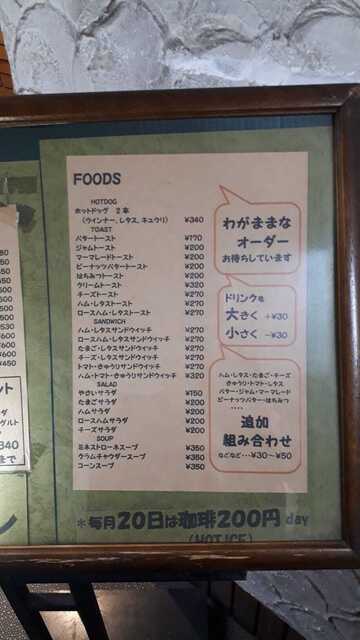 FOODS
HOTDOG
ホットドッグ 2本
(ウインナー、レタス、キュウリ) ¥340
TOAST
バタートースト ¥170
ジャムトースト ¥200
マーマレードトースト ¥200
ピーナッツバタートースト ¥200
はちみつトースト ¥200
クリームトースト ¥320
チーズトースト ¥270
ハム・レタストースト ¥270
ロースハム・レタストースト ¥270
SANDWICH
ハム・レタスサンドウイッチ ¥270
ロースハム・レタスサンドウイッチ ¥270
たまご・レタスサンドウイッチ ¥270
チーズ・レタスサンドウイッチ ¥270
トマト・きゅうりサンドウイッチ ¥270
ハム・トマト・きゅうりサンドウイッチ ¥320
SALAD
やさいサラダ ¥150
たまごサラダ ¥200
ハムサラダ ¥200
ロースハムサラダ ¥200
チーズサラダ ¥200
SOUP
ミネストローネスープ ¥350
クラムチャウダースープ ¥350
コーンスープ ¥350
わがままな
オーダー
お待ちしています
ドリンクを
大きく +¥30
小さく -¥30
ハム・レタス・たまご・チーズ
きゅうり・トマト・レタス
バター・ジャム・マーマレード
ピーナッツバター・はちみつ
・・・・
追加
組み合わせ
などなど・・・¥30～¥50
*毎月20日は珈琲200円day
(HOT,ICE)